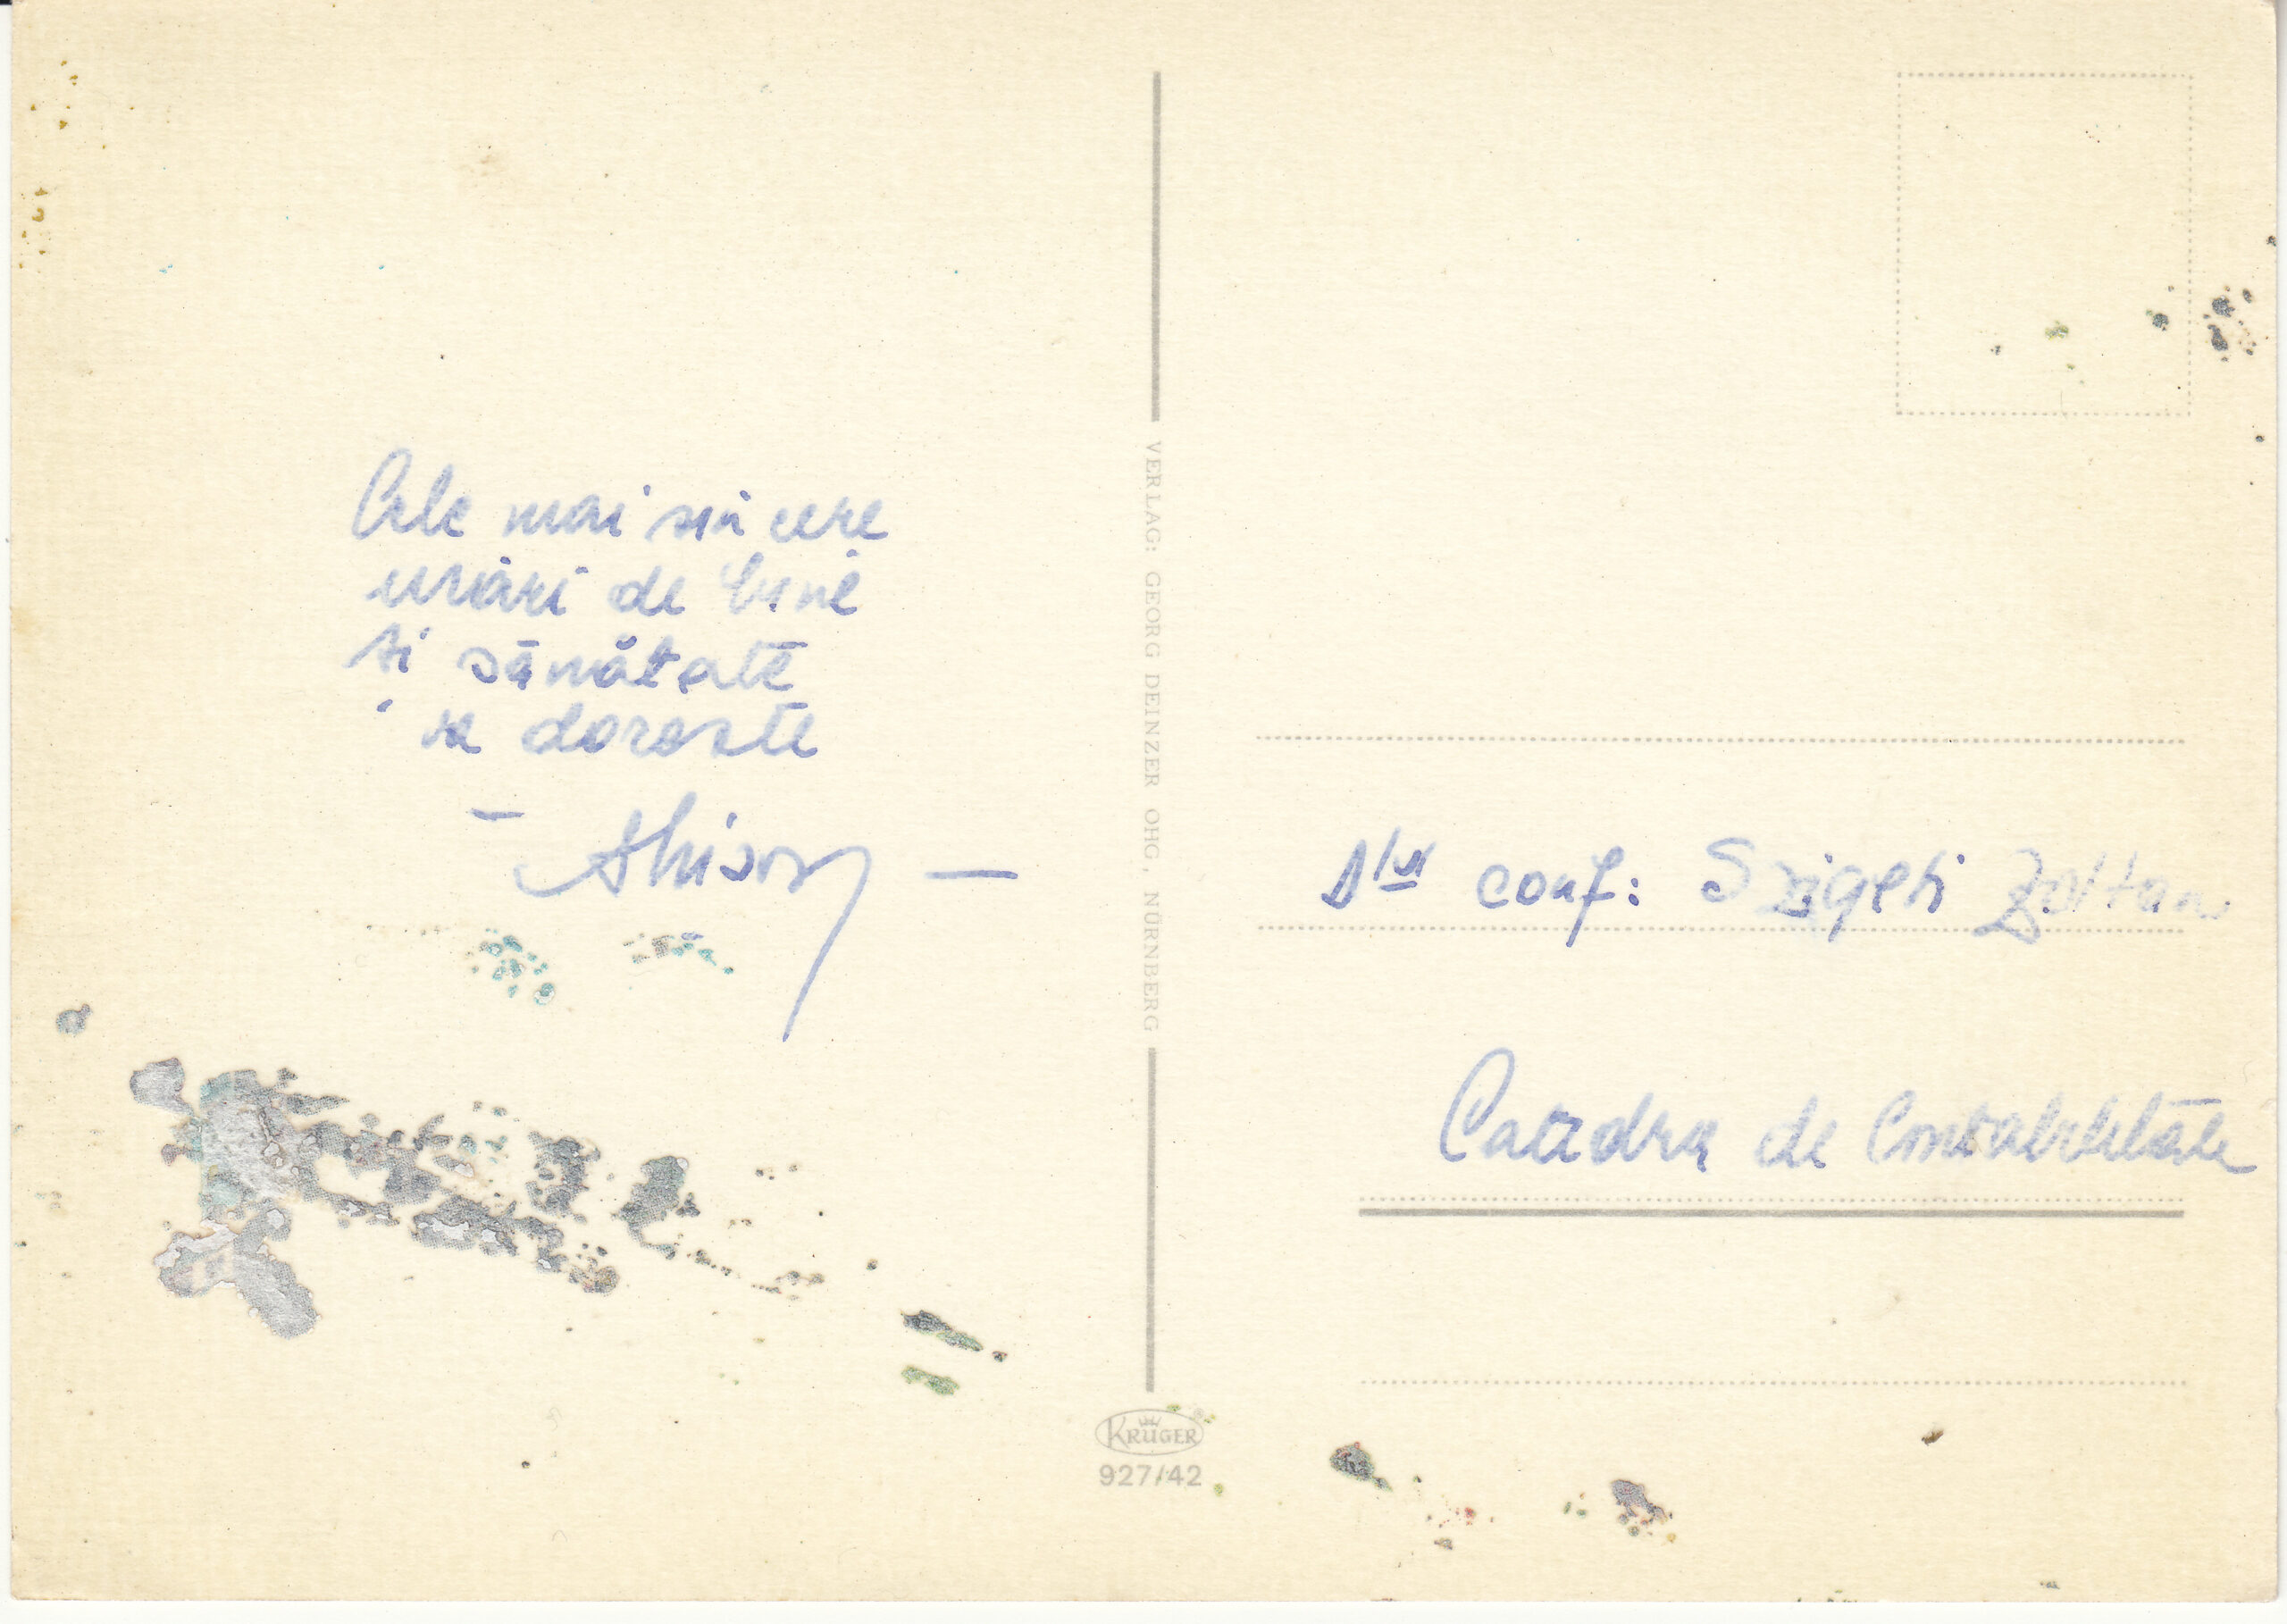 Cele mai sincere
urări de bine
și sănătate
vă dorește
VERLAG: GEORG DEINZER OHG, NÜRNBERG
Dlui conf: Szigeti Zoltan
Catedra de Contabilitate
KRÜGER
927/42